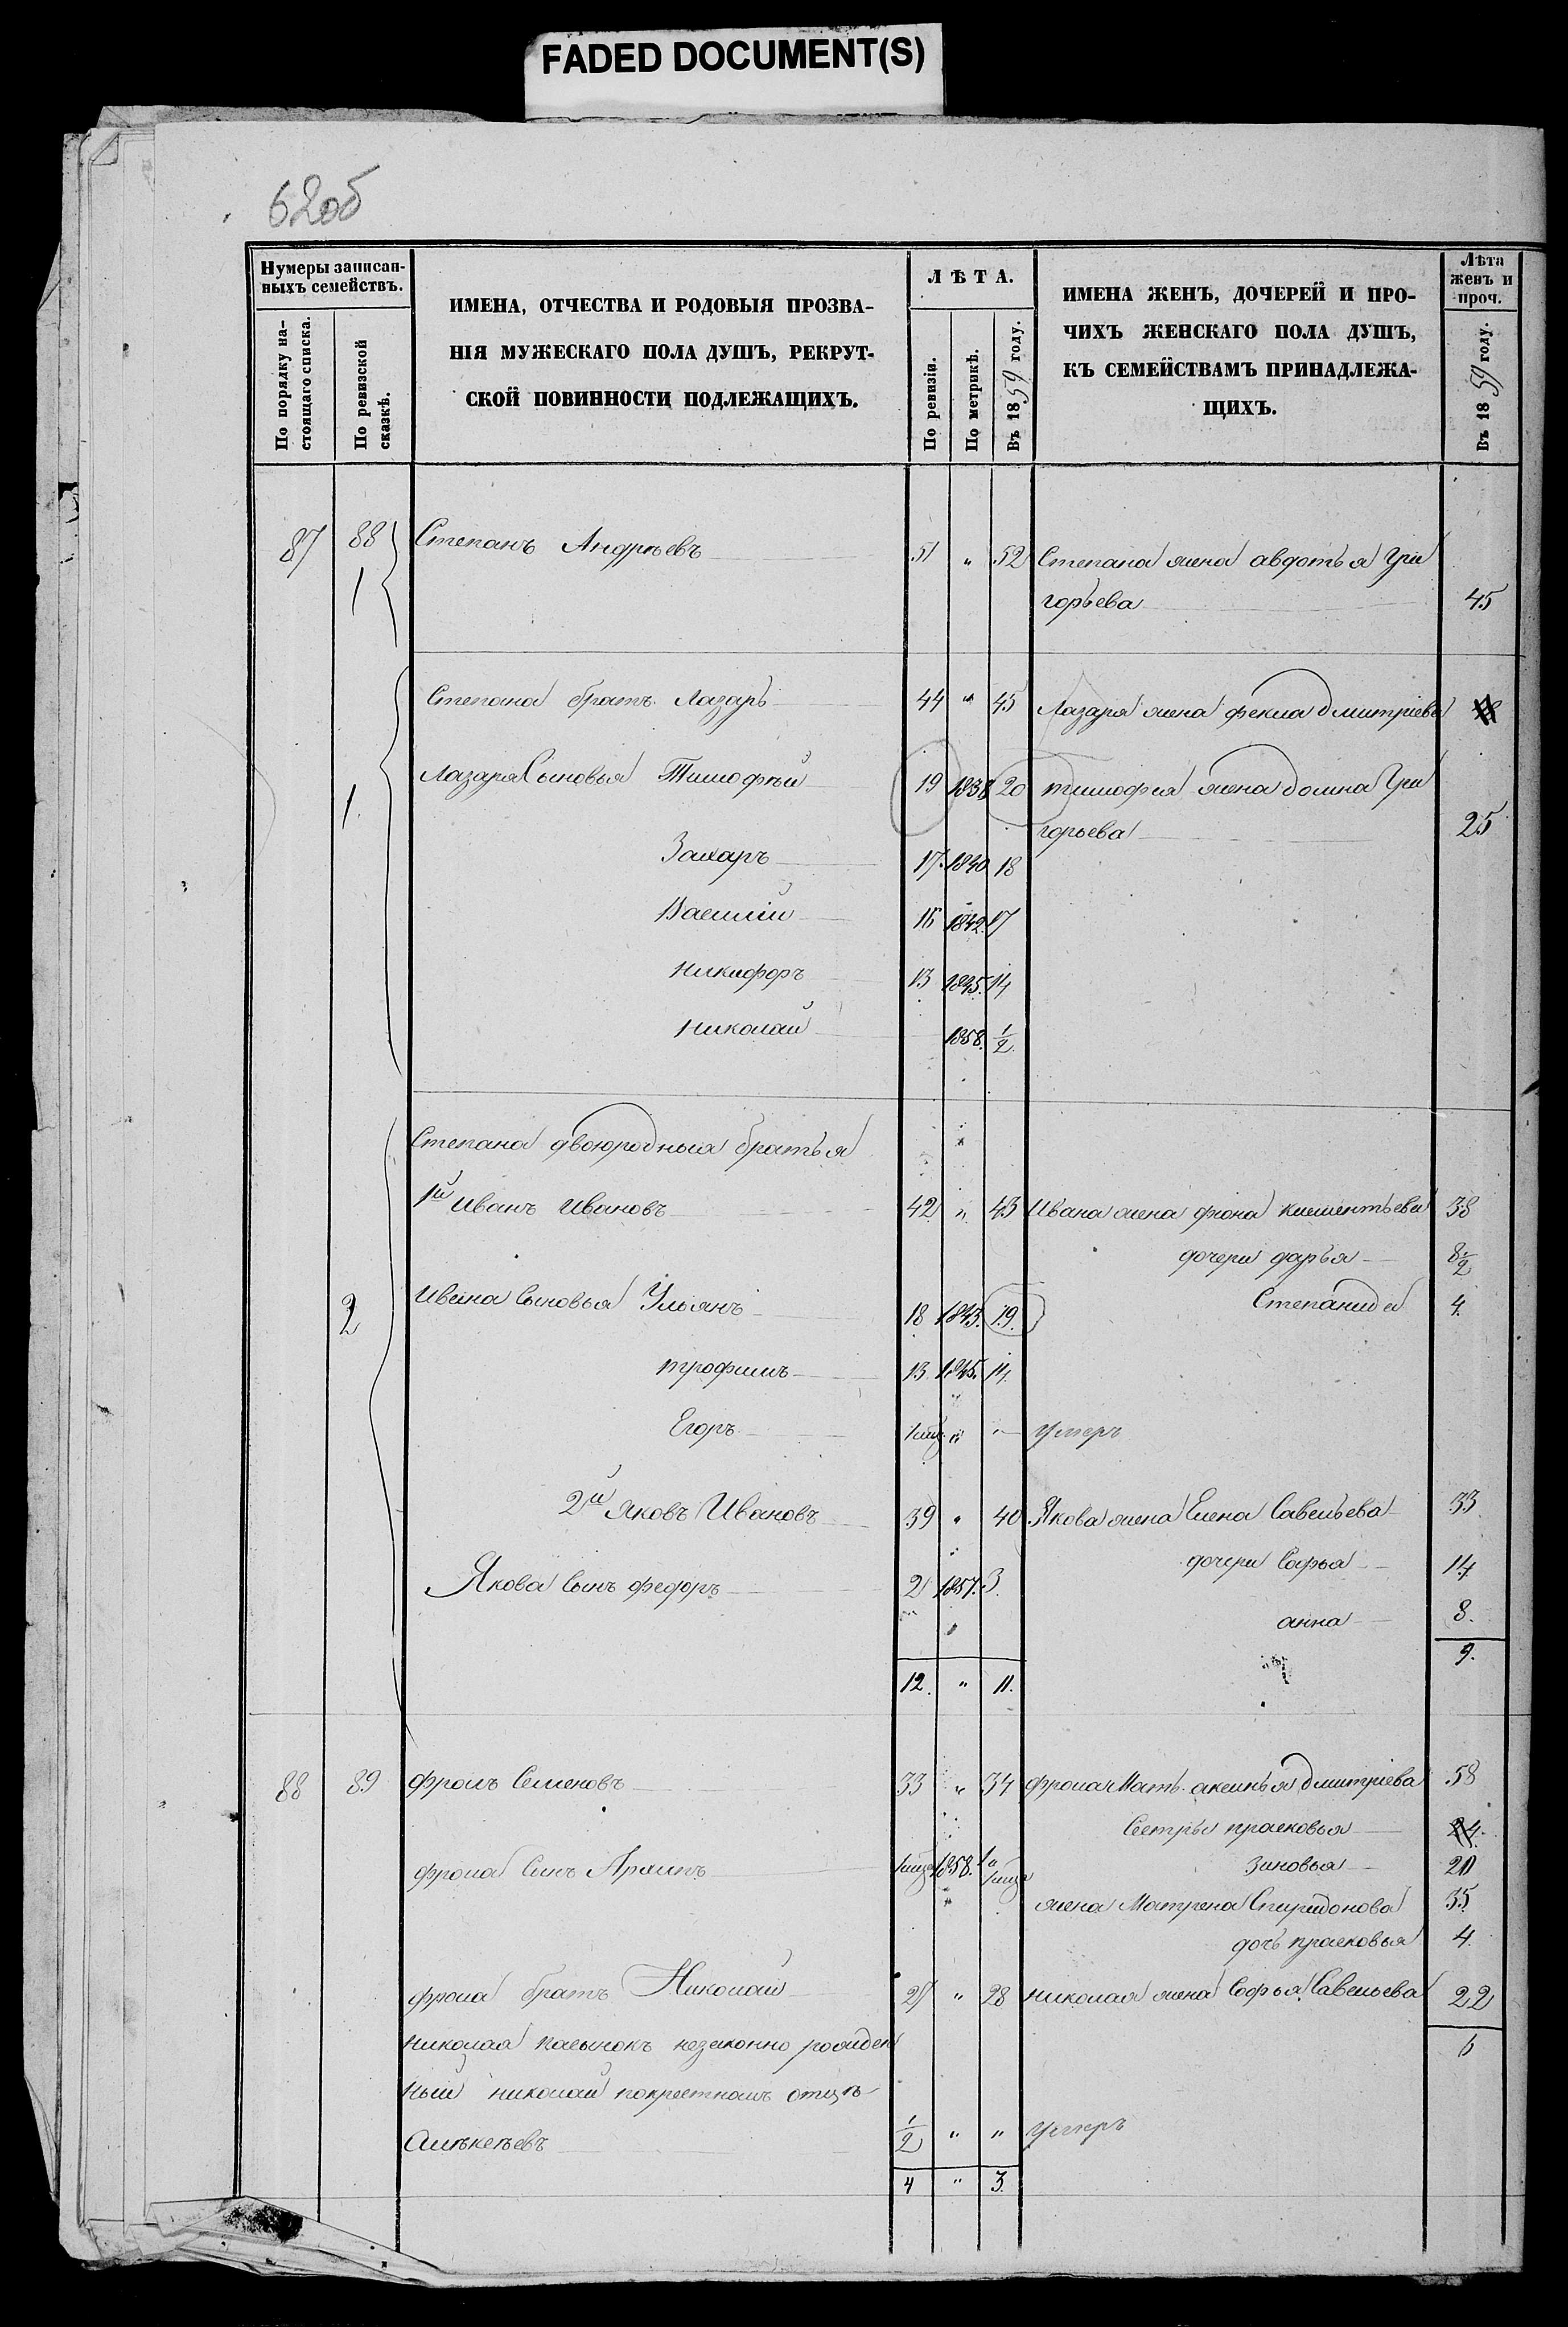 FADED DOCUMENT(S)
62об
Нумеры записан-
ныхъ семействъ.
По порядку на-
стоящаго списка.
По ревизской
сказкѣ.
ИМЕНА, ОТЧЕСТВА И РОДОВЫЯ ПРОЗВА-
НІЯ МУЖЕСКАГО ПОЛА ДУШЪ, РЕКРУТ-
СКОЙ ПОВИННОСТИ ПОДЛЕЖАЩИХЪ.
ЛѢТА.
По ревизіи.
По метрикѣ.
Въ 1859 году.
ИМЕНА ЖЕНЪ, ДОЧЕРЕЙ И ПРО-
ЧИХЪ ЖЕНСКАГО ПОЛА ДУШЪ,
КЪ СЕМЕЙСТВАМЪ ПРИНАДЛЕЖА-
ЩИХЪ.
Лѣта
женъ и
проч.
Въ 1859 году.
87 88 Степанъ Андрѣевъ 51 " 52 Степана жена авдотья Гри
1 горьева 45
Степана братъ Лазарь 44 " 45 Лазаря жена фекла дмитріева
1. Лазаря Сыновья Тимофѣй 19 1838 20 тимофея жена домна Гри
горьева 25
Захаръ 17. 1840 18
Василій 16 1842. 17
никифоръ 13 1845. 14
николай 1858. 1/2
Степана двоюродныя братья
1й Иванъ Ивановъ 42 " 43 Ивана жена фіона клементьева 38
дочери дарья 8 1/2
2 Ивана Сыновья Ульянъ 18 1843. 19. Степанида 4.
трофимъ 13 1845. 14.
Егоръ " " умеръ
2й Яковъ Ивановъ 39 " 40 Якова жена Елена Савельева 33
Якова Сынъ федоръ 2 1857. 3. дочери Софья 14
анна 8.
9.
12. " 11.
88 89 фролъ Семеновъ 33 " 34 фрола Мать аксинья дмитріева 58
Сестры прасковья 24.
фрола Сынъ 1858. зиновья 20
жена Матрена Спиридонова 35
дочь прасковья 4.
фрола братъ Николай 27 " 28 николая жена Софья Савельева 22
николая пасынокъ незаконно рожден 6
ный николай по крестномъ отцѣ
Алѣксѣевъ 1/2 " " умеръ
4 " 3.